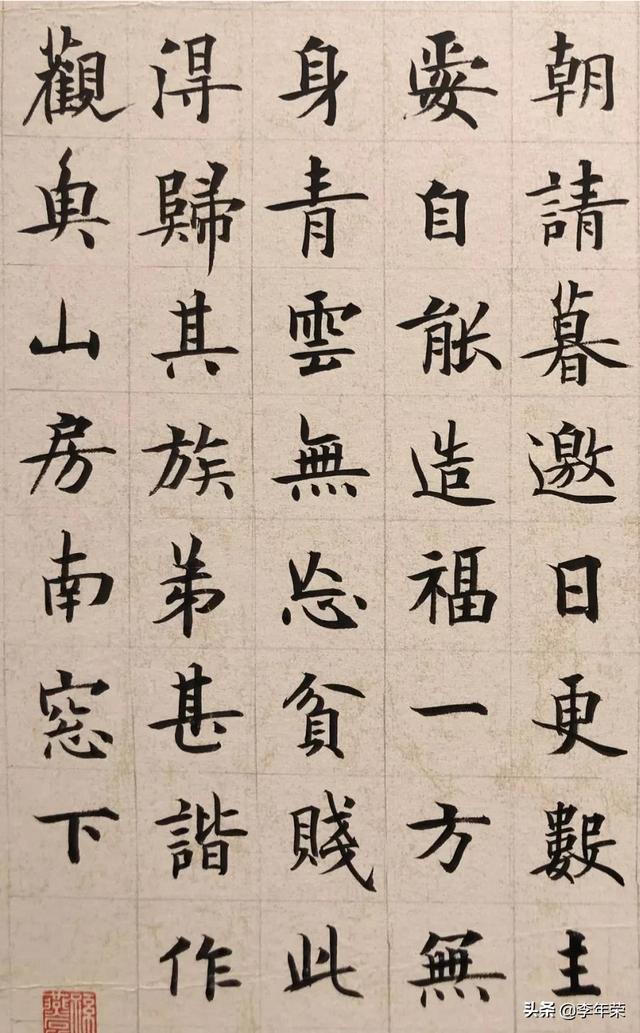 朝請暮邀日更數主
要自能造福一方無
身青雲無忘貧賤此
淂歸其族弟甚諧作
觀山房南窓下
头条 @李年荣